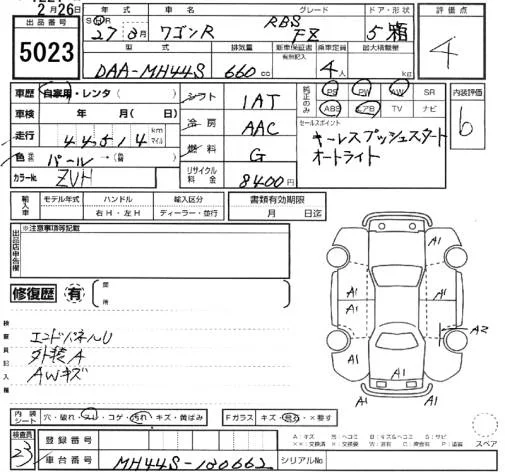 2月26日
出品番号
5023
年式 車名 グレード ドア・形状
S H R 27年8月 ワゴンR RBS FZ 5 箱
型式 排気量 新車保証書 乗車定員 最大積載量
有無記入
DAA-MH44S 660cc 4人 kg
評価点
4
車歴 自家用・レンタ( )
車検 年 月( 日)
走行 44,514 km マイル
色 パール→( )
カラーNo. ZVH
シフト 1AT
冷房 AAC
燃料 G
リサイクル料金 8400円
純正のみ PS PW AW SR
ABS エアB TV ナビ
セールスポイント
キーレスプッシュスタート
オートライト
内装評価
b
輸入車 モデル年式 ハンドル 輸入区分
年 右H・左H ディーラー・並行
書類有効期限
月 日迄
出品店申告欄
※注意事項等記載
修復歴 有 箇所
検査員記入欄
エンドパネルU
外装A
AWキズ
A1 A1
A1 A1
A1 A1 A2
A1
A1 A1
内装シート 穴・破れ・スレ・コゲ・汚れ・キズ・黄ばみ
Fガラス キズ・飛石・×要す
A:キズ U:ヘコミ B:キズ&ヘコミ S:サビ
××:交換済 ×:交換要 W:波有 C:腐食有 P:塗装
スペア
検査員
23
登録番号
車台番号 MH44S-180662 シリアルNo.